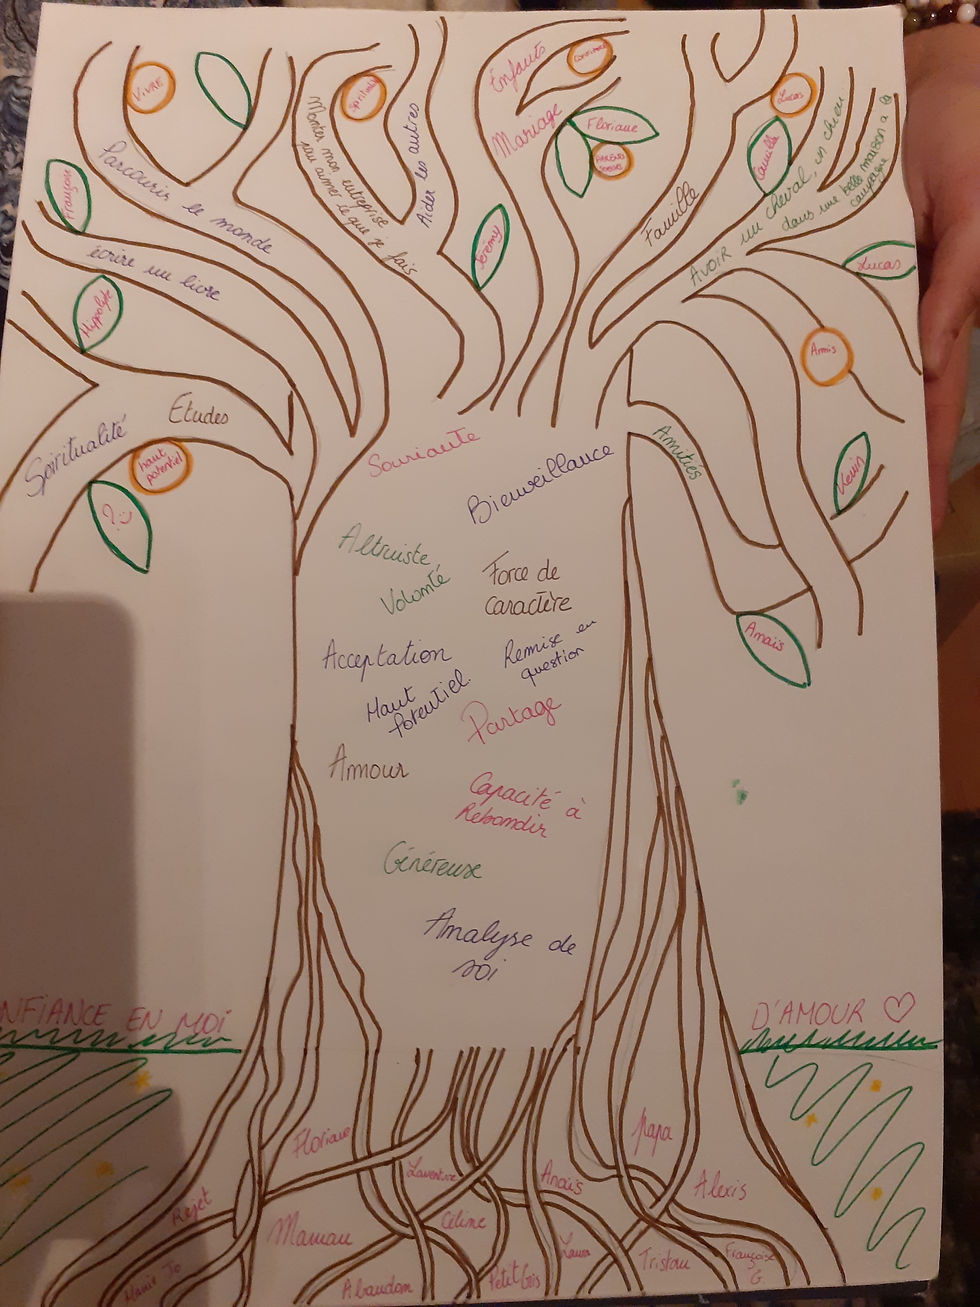 VIVRE
Spiritualité
Enfants
Confiance
Lucas
Mariage
Floriane
Parcourir le monde
Monter mon entreprise
aimer ce que je fais
Aider les autres
Camille
Famille
Avoir un cheval, un chien
dans une belle maison à
campagne
Françoise
écrire un livre
Jérémy
Lucas
Hippolyte
Amis
Etudes
Spiritualité
haut
potentiel
?
Souriante
Bienveillance
Amitiés
Kevin
Altruiste
Volonté
Force de
caractère
Acceptation
Remise en
question
Anaïs
Haut
Potentiel
Partage
Amour
Capacité à
Rebondir
Généreuse
Analyse de
soi
NFIANCE EN MOI
D'AMOUR ♡
Floriane
Papa
Laurentine
Anaïs
Alexis
Rejet
Maman
Céline
Laura
Tristan
Françoise
G.
Mamie Jo
Abandon
Petit Gris